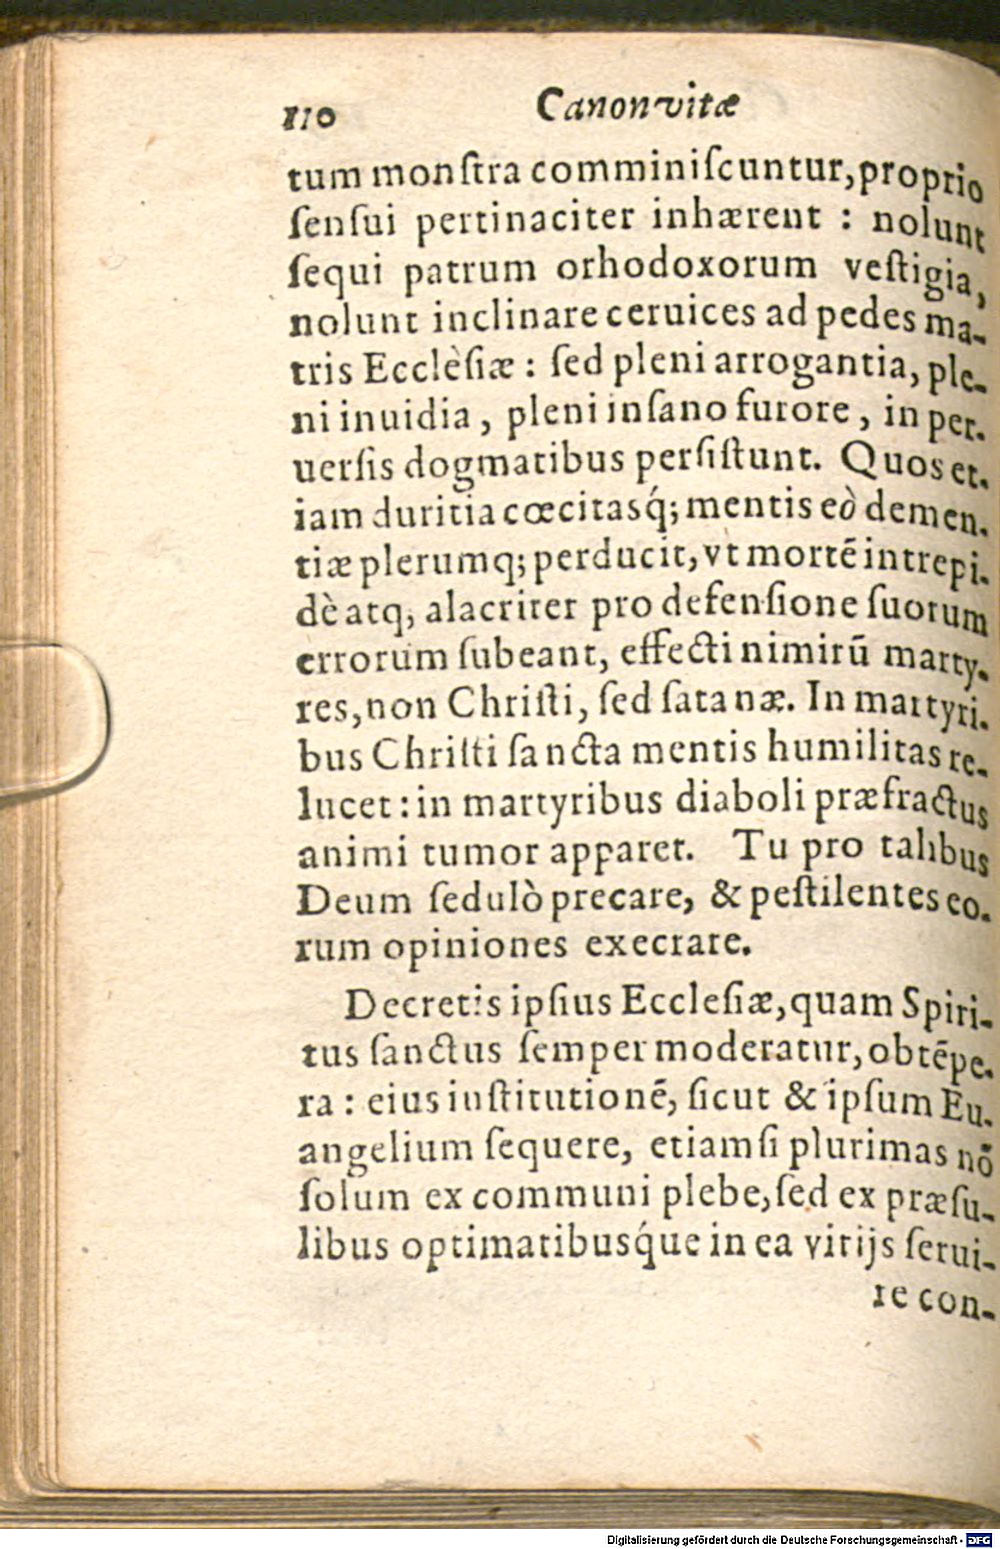 110 Canon vitæ
tum monſtra comminiſcuntur, proprio
ſenſui pertinaciter inhærent : nolunt
ſequi patrum orhodoxorum veſtigia,
nolunt inclinare ceruices ad pedes ma-
tris Eccleſiæ : ſed pleni arrogantia, ple-
ni inuidia, pleni inſano furore, in per-
uerſis dogmatibus perſiſtunt. Quos et-
iam duritia cœcitasq́; mentis eò demen-
tiæ plerumq; perducit, vt mortē intrepi-
dè atq; alacriter pro defenſione ſuorum
errorum ſubeant, effecti nimirū marty-
res, non Chriſti, ſed ſatanæ. In martyri-
bus Chriſti ſancta mentis humilitas re-
lucet : in martyribus diaboli præfractus
animi tumor apparet. Tu pro talibus
Deum ſedulò precare, & peſtilentes eo-
rum opiniones execrare.
Decretis ipſius Eccleſiæ, quam Spiri-
tus ſanctus ſemper moderatur, obtēpe-
ra : eius inſtitutionē, ſicut & ipſum Eu-
angelium ſequere, etiamſi plurimas nō
ſolum ex communi plebe, ſed ex præſu-
libus optimatibusq́ue in ea vitijs ſerui-
re con-
Digitalisierung gefördert durch die Deutsche Forschungsgemeinschaft - DFG